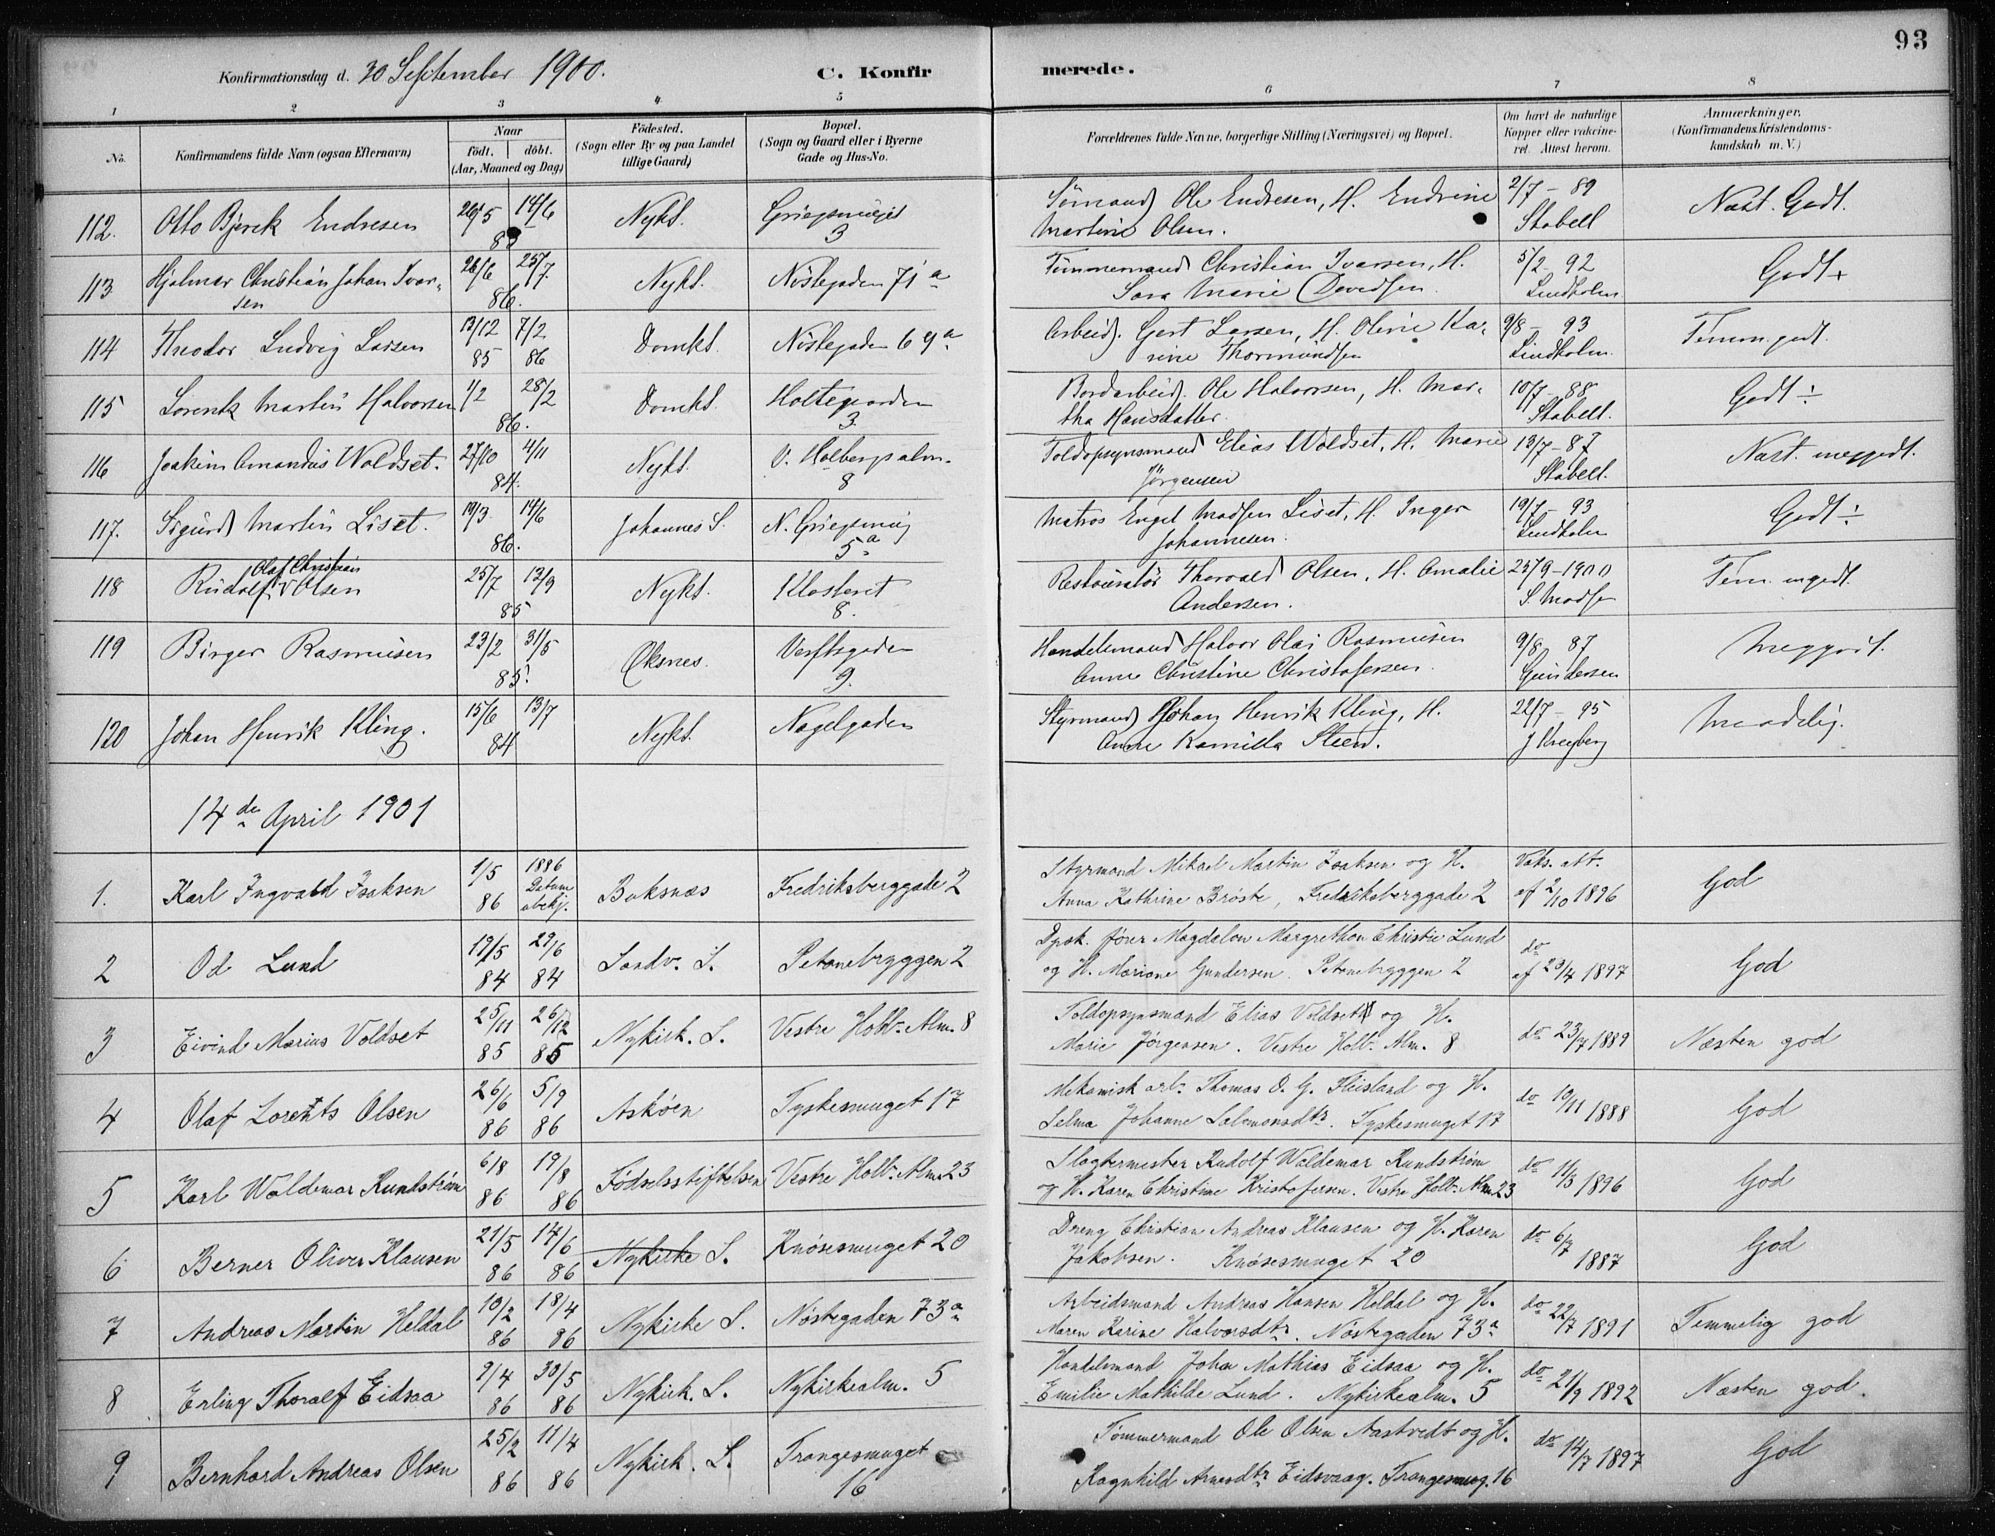 93
Konfirmationsdag d. 30 September 1900.
C. Konfirmerede.
1 2 3 4 5 6 7 8
No.
Konfirmandens fulde Navn (ogsaa Efternavn)
Naar
födt. döbt.
(Aar, Maaned og Dag)
Födested.
(Sogn eller By og paa Landet
tillige Gaard)
Bopæl.
(Sogn og Gaard eller i Byerne
Gade og Hus-No.
Forældrenes fulde Navne, borgerlige Stilling (Næringsvei) og Bopæl.
Om havt de naturlige
Kopper eller vakcine-
ret. Attest herom.
Anmærkninger.
(Konfirmandens Kristendoms-
kundskab m. V.)
112. Otto Bjerck Endresen 26/5 14/6 Nykt. Griegsmuget Sømand Ole Endresen, H. Endrine 2/7 - 89 Næst. Godt.
85 3 Martine Olsen. Stabell
113 Hjalmar Christian Johan Ivar- 28/6 25/7. Nykt. Nöstegaden 71 a Tømmermand Christian Ivarsen, H. 5/2 - 92 Godt +
sen 86. Sara Marie Davidsen. Lindholm
114 Theodor Ludvig Larsen 13/12 7/2 Domkt. Nöstegaden 69 a Arbeid. Gert Larsen, H. Oline Ka- 9/8 - 93 Temm. godt.
85 86 rine Thormundsen Lindholm.
115 Lorentz Martin Halvorsen 1/2 28/2 Domkt. Holtegaarden Bordarbeid. Ole Halvorsen, H. Mar- 10/7 - 88 Godt ÷
86. 3. tha Hansdatter. Stabell.
116 Joakim Amandus Woldset. 27/10 4/11 Nykt. V. Holbergsalm. Toldopsynsmand Elias Woldset, H. Marie 13/7 - 87 Næst. meggodt.
84. 8 Jörgensen Stabell.
117. Sigurd Martin Liset. 19/3. 14/6 Johannes S. N. Griegsmug Matros Engel Madsen Liset, H. Inger 19/7 - 93 Godt ÷
86. 5 a Johannesen. Lindholm
Olaf Christian
118 Rudolf V Olsen 25/7 13/9 Nykt. Klosteret Restauratör Thorvald Olsen, H. Amalie 25/9 - 1900 Tem. mgodt.
85 8. Andersen. S. Madsen
119 Birger Rasmusen 23/2 31/5 Øksnes. Verftsgaden Handelsmand Halvor Olai Rasmusen 9/8 87 Meggodt.
85. 9. Anne Christine Christofersen. Gundersen
120 Johan Henrik Kling. 15/6 13/7 Nykt. Nagelgaden Styrmand Johan Henrik Kling, H. 22/7 - 95 Maadelig.
84 Anne Kamilla Steen. J Kreyberg
14 de April 1901
1. Karl Ingvald Isaksen 1/5 86 1886 Datum ubekj. Buksnæs Fredriksberggade 2 Styrmand Mikael Martin Isaksen og H. Vaks. att. God
Anna Kathrine Brøste, Fredriksberggade 2 af 2/10 1896
2 Od Lund 19/5 84 29/6 84 Sandv. S. Petanebryggen 2 Dpsk. fører Magdalon Margrethon Christie Lund do God
og H. Mariane Gundersen. Petanebryggen 2 af 23/4 1897
3 Eivind Marius Voldset 25/11 85 26/12 85 Nykirk. S. Vestre Holb. Alm. 8 Toldopsynsmand Elias Voldset og H. Næsten god
Marie Jørgensen. Vestre Holb. Alm. 8 do 23/7 1889
4 Olaf Lorents Olsen 26/6 86 5/9 86 Askøen Tyskesmuget 17 Mekanisk arb. Thomas O. G. Fleisland og H. do 10/11 1888 God
Selma Johanne Salomonsdtr. Tyskesmuget 17
5 Karl Waldemar Rundstrøm 6/8 86 19/8 86 Fødselsstiftelsen Vestre Holb. Alm. 23 Slagtermester Rudolf Waldemar Rundstrøm do 11/3 1896 God
og H. Karen Christine Kristofersen. Vestre Holb. Alm 23
6 Berner Oliver Klausen 21/5 86 14/6 86 Nykirke S. Knøsesmuget 20 Dreng Christian Andreas Klausen og H. Karen do 6/7 1887 God
Jakobsen. Knøsesmuget 20
7 Andreas Martin Heldal 10/2 86 18/4 86 Nykirke S. Nøstegaden 73 a Arbeidsmand Andreas Hansen Heldal og H. do 22/7 1891 Temmelig god
Maren Karine Halvorsdtr. Nøstegaden 73 a
8 Erling Thoralf Eidsaa 2/4 86 30/5 86 Nykirk. S. Nykirkealm. 5 Handelsmand Johan Mathias Eidsaa og H. do 21/9 1892 Næsten god.
Emilie Mathilde Lund. Nykirkealm. 5
9 Bernhard Andreas Olsen 25/2 86 11/4 86 Nykirk. S. Trangesmuget 16 Tømmermand Ole Olsen Aastvedt og H. do 14/7 1897 God
Ragnhild Arnesdtr Eidsvaag. Trangesmug. 16